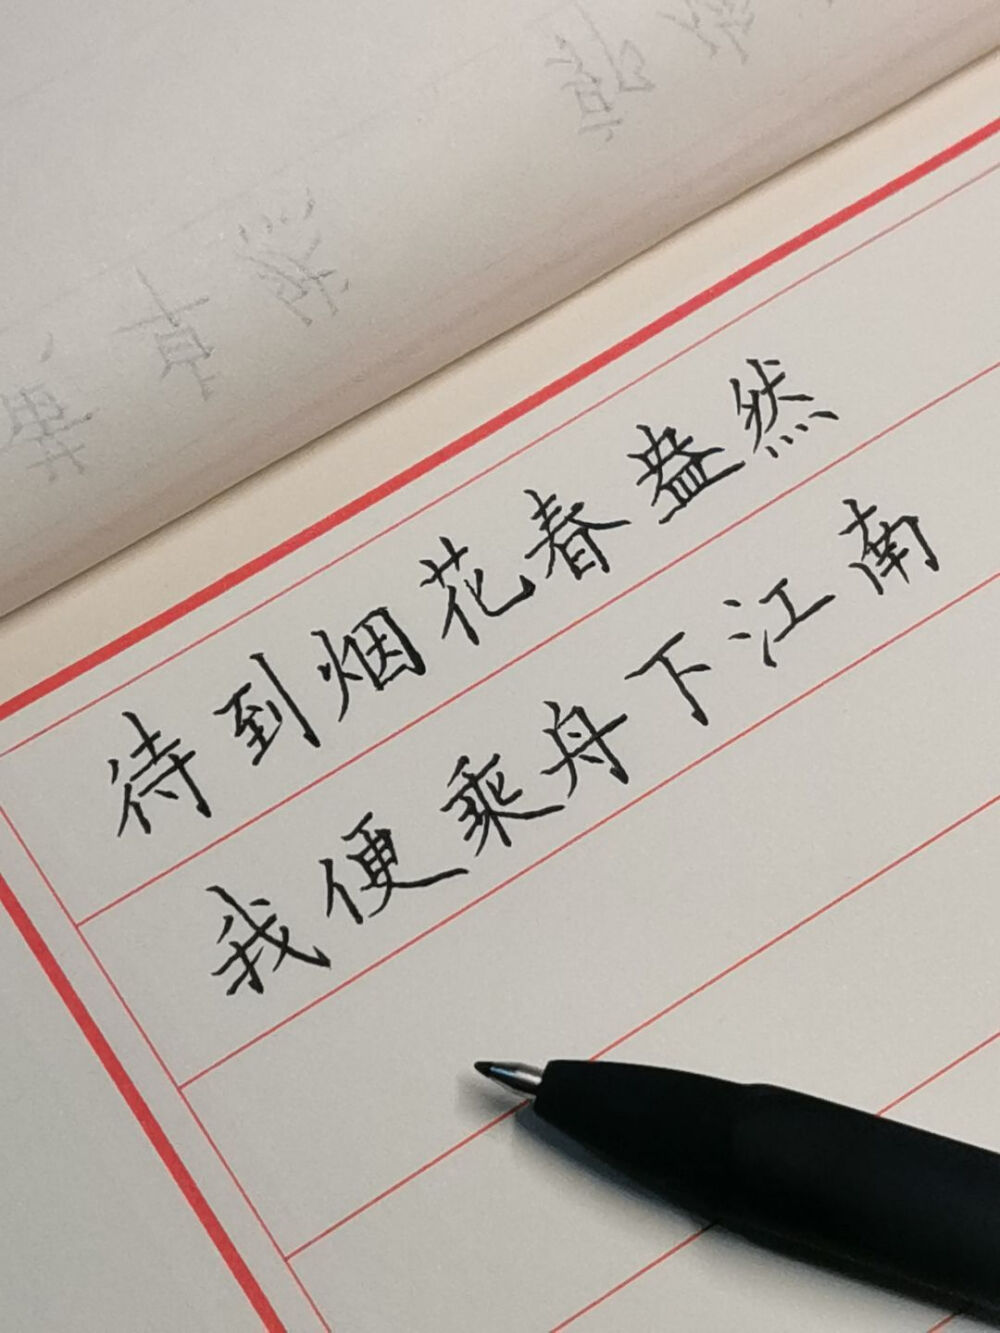 待到烟花春盎然
我便乘舟下江南